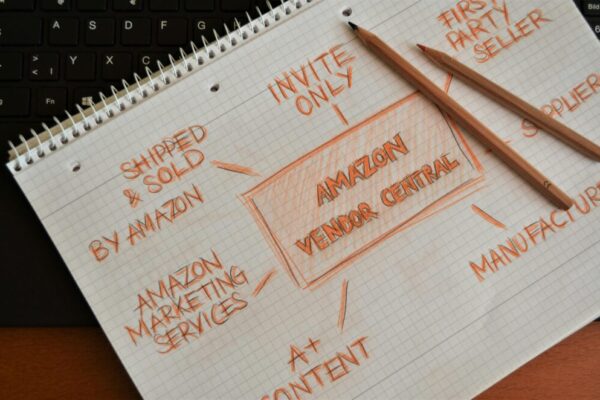 INVITE
ONLY
FIRST
PARTY
SELLER
SHIPPED
& SOLD
BY AMAZON
AMAZON
VENDOR CENTRAL
SUPPLIER
MANUFACTUR
AMAZON
MARKETING
SERVICES
A+
CONTENT